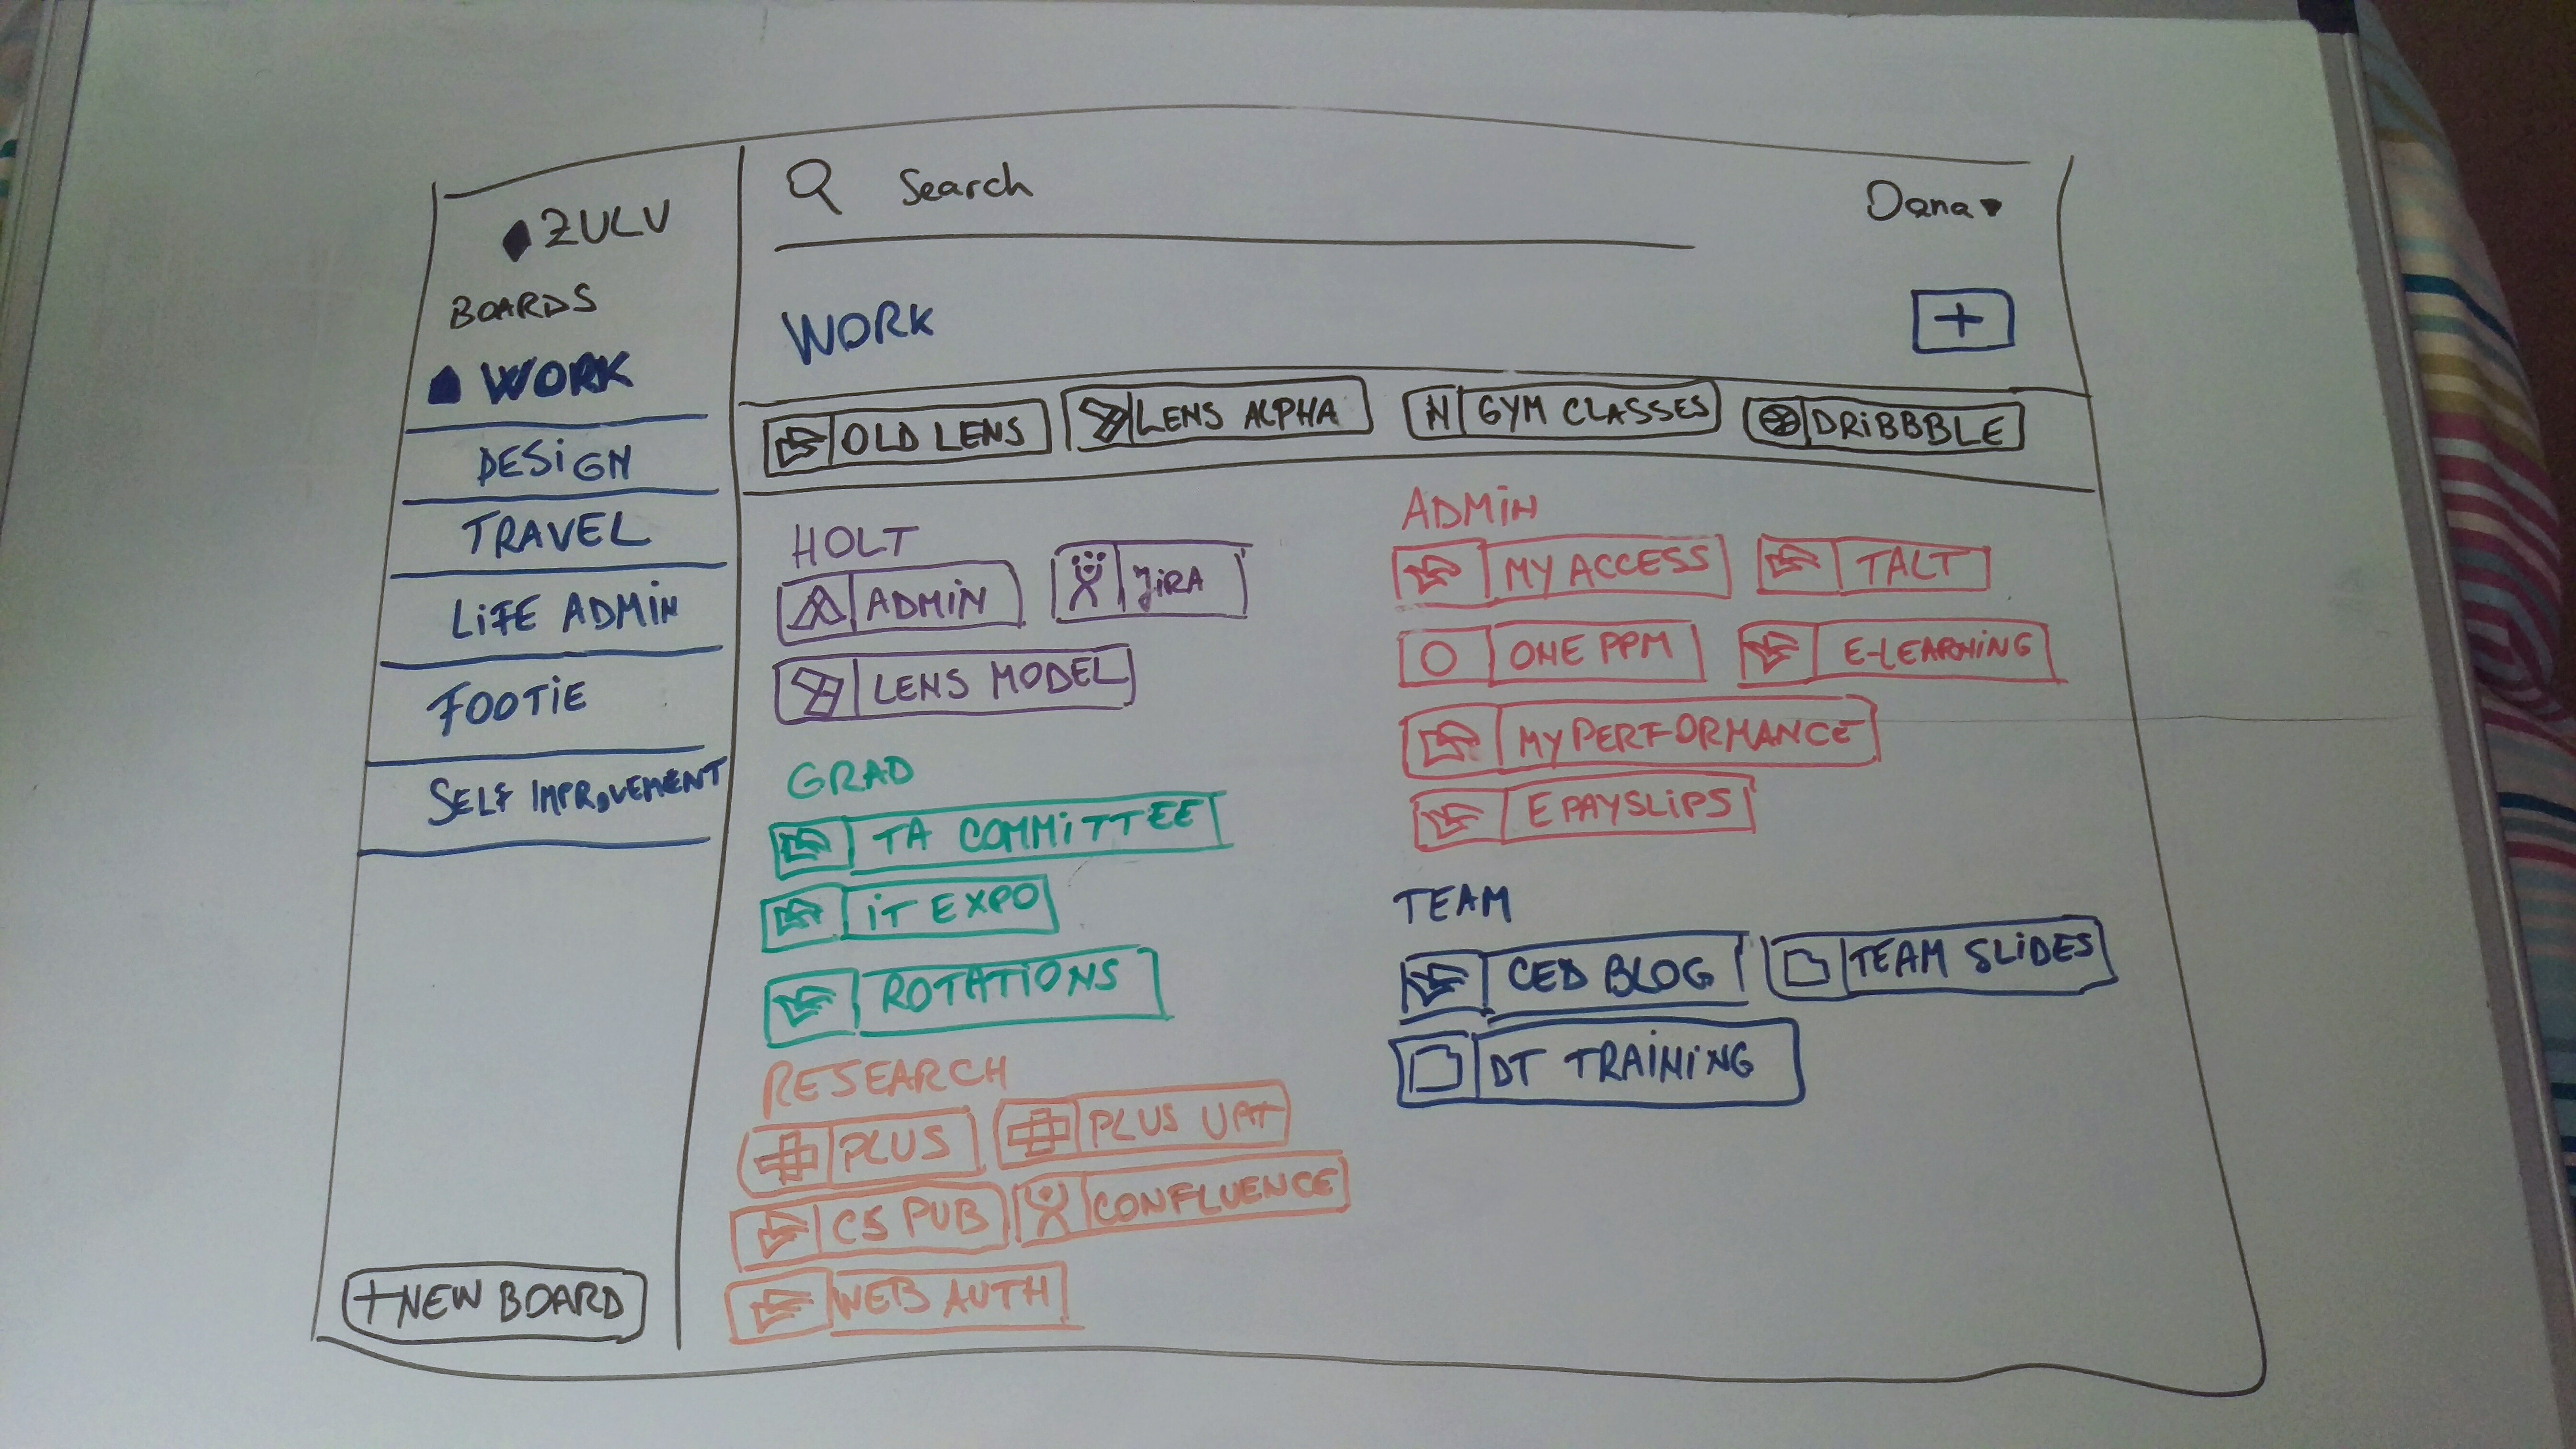 ZULU
BOARDS
WORK
DESiGN
TRAVEL
LiFE ADMiN
FOOTiE
SELF IMPROVEMENT
+NEW BOARD
Search
Dana
WORK
+
OLD LENS
LENS ALPHA
N GYM CLASSES
DRiBBBLE
HOLT
ADMiN
JiRA
LENS MODEL
GRAD
TA COMMiTTEE
iT EXPO
ROTATiONS
RESEARCH
PLUS
PLUS UAT
CS PUB
CONFLUENCE
WEB AUTH
ADMiN
MY ACCESS
TALT
ONE PPM
E-LEARNiNG
MY PERFORMANCE
E PAYSLiPS
TEAM
CED BLOG
TEAM SLiDES
DT TRAiNiNG